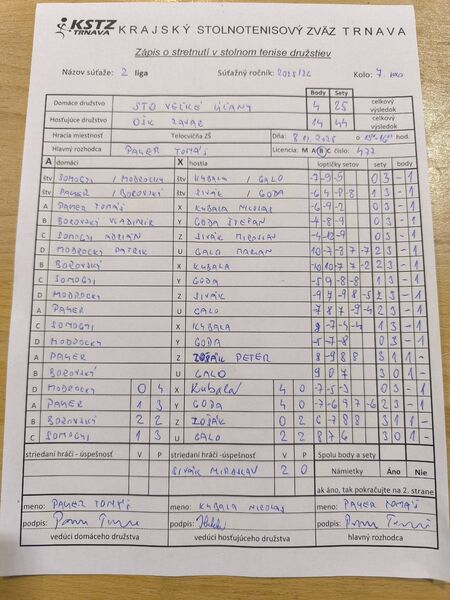 KSTZ TRNAVA KRAJSKÝ STOLNOTENISOVÝ ZVÄZ TRNAVA
Zápis o stretnutí v stolnom tenise družstiev
Názov súťaže: 2 liga Súťažný ročník: 2025/26 Kolo: 7.
Body Sety
Domáce družstvo STO VEĽKÉ ÚĽANY 4 25 celkový výsledok
Hosťujúce družstvo OŠK ZAVAR 14 44 celkový výsledok
Hracia miestnosť Telocvičňa ZŠ Dňa: hod.
Hlavný rozhodca PAYER TOMÁŠ Licencia: M A B C číslo: 477
A domáci X hostia loptičky setov sety body
štv SOMOGYI / MODROCKY štv KUBALA / GALO -7 -9 -5 0 3 - 1
štv PAYER / BOROVSKÝ štv SIVÁK / GODA -6 -4 -8 -8 1 3 - 1
A PAYER TOMÁŠ X KUBALA NICOLAS -6 -9 -2 0 3 - 1
B BOROVSKÝ VLADIMÍR Y GODA ŠTEFAN -4 -8 -9 0 3 - 1
C SOMOGYI ADRIÁN Z SIVÁK MIROSLAV -4 -12 -9 0 3 - 1
D MODROCKY PATRIK U GALO MARIAN 10 -7 -8 7 -7 2 3 - 1
B BOROVSKÝ X KUBALA -10 10 -7 7 -2 2 3 - 1
C SOMOGYI Y GODA -5 9 -8 -8 1 3 - 1
D MODROCKY Z SIVÁK -9 7 -9 8 -5 2 3 - 1
A PAYER U GALO 7 -8 -7 -9 1 3 - 1
C SOMOGYI X KUBALA 9 -7 -4 -4 1 3 - 1
D MODROCKY Y GODA -5 -7 -8 0 3 - 1
A PAYER Z ZOŠÁK PETER 8 -9 8 8 3 1 1 -
B BOROVSKÝ U GALO 9 0 7 3 0 1 -
D MODROCKY 0 4 X Kubala 4 0 -7 -5 -3 0 3 - 1
A PAYER 1 3 Y GODA 4 0 -7 -6 9 7 -6 2 3 - 1
B BOROVSKÝ 2 2 Z ZOŠÁK 0 2 6 -7 8 8 3 1 1 -
C SOMOGYI 1 3 U GALO 2 2 8 7 6 3 0 1 -
striedaní hráči - úspešnosť V P striedaní hráči - úspešnosť V P Spolu body a sety
SIVÁK MIROSLAV 2 0 Námietky Áno Nie
ak áno, tak pokračujte na 2. strane
meno: PAYER TOMÁŠ meno: KUBALA NICOLAS meno: PAYER TOMÁŠ
podpis: podpis: podpis:
vedúci domáceho družstva vedúci hosťujúceho družstva hlavný rozhodca